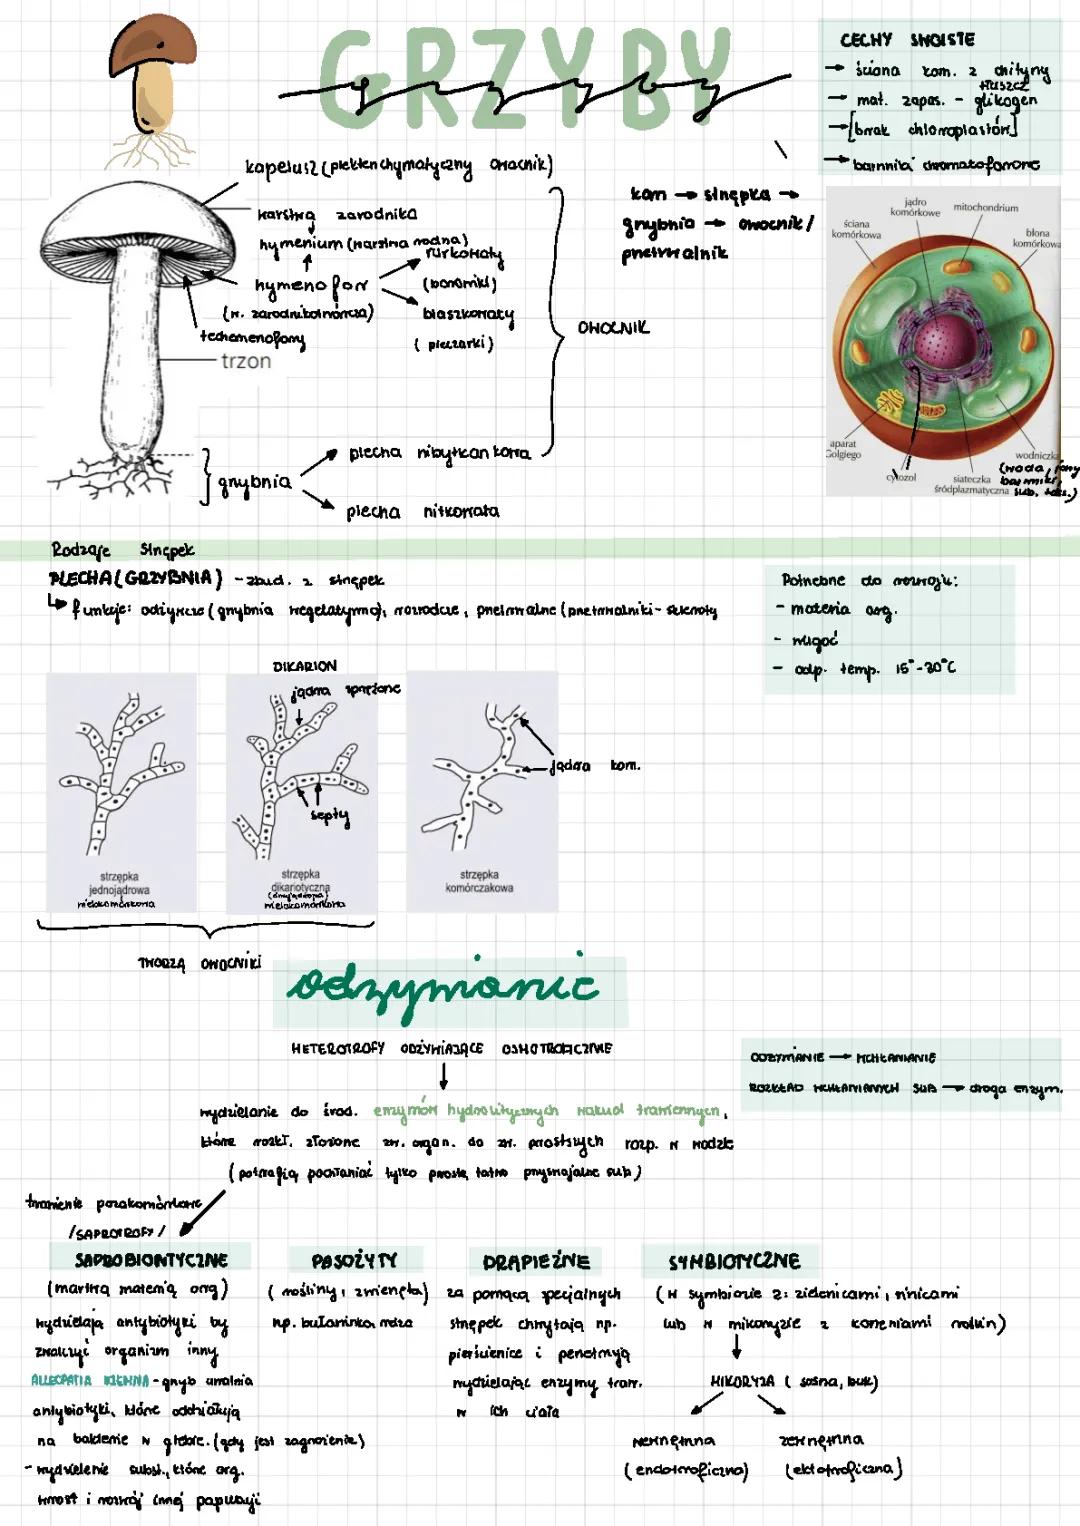 GRZYBY
grzyby
CECHY SWOISTE
→ ściana kom. z chityny
→ mat. zapas. - glikogen
tłuszcz
→ [brak chloroplastów]
→ barwniki chromatoforowe
kapelusz (plektenchymatyczny owocnik)
warstwa zarodnika
hymenium (warstwa rodna)
hymenofor
(w. zarodnikotwórcza)
rurkowaty
(borowiki)
blaszkowaty
(pieczarki)
trzon
OWOCNIK
kom → strzępka →
grzybnia → owocnik /
plecha nibytkankowa
grzybnia
plecha nitkowata
ściana komórkowa
jądro komórkowe
mitochondrium
błona komórkowa
aparat Golgiego
cytozol
siateczka śródplazmatyczna
wodniczka
(woda, jony
barwniki,
sub. toks.)
Rodzaje strzępek
PLECHA (GRZYBNIA) - zbud. z strzępek
↳ funkcje: odżywcze (grzybnia wegetatywna), rozrodcze,
Potrzebne do rozwoju:
- materia org.
- wilgoć
- odp. temp. 15°-30°C
DIKARION
jądra sprzężone
septy
jądra kom.
strzępka
jednojądrowa
wielokomórkowa
strzępka
dikariotyczna
(dwujądrowa)
wielokomórkowa
strzępka
komórczakowa
TWORZĄ OWOCNIKI
odżywianie
HETEROTROFY ODŻYWIAJĄCE OSMOTROFICZNIE
ODŻYWIANIE → WCHŁANIANIE
ROZKŁAD WCHŁANIANYCH SUB → droga enzym.
wydzielanie do środ. enzymów hydrolitycznych wakuol trawiennych,
które rozkł. złożone zw. organ. do zw. prostszych rozp. w wodzie
(potrafią pochłaniać tylko proste, łatwo przyswajalne sub)
trawienie pozakomórkowe
/SAPROTROFY/
SAPROBIONTYCZNE
(martwą materią org)
wydzielają antybiotyki by
zniszczyć organizm inny
ALLELOPATIA - grzyb uwalnia
antybiotyki, które oddziałują
na bakterie w glebie. (gdy jest zagrożenie)
- wydzielenie subst., które org.
wzrost i rozwój innej populacji
PASOŻYTY
(rośliny, zwierzęta)
np. buławinka, rdza
DRAPIEŻNE
za pomocą specjalnych
strzępek chwytają np.
pierścienice i penetrują
wydzielając enzymy traw.
w ich ciała
SYMBIOTYCZNE
(w symbiozie z: zielenicami, sinicami
lub w mikoryzie z korzeniami roślin)
MIKORYZA (sosna, buk)
wewnętrzna
(endotroficzna)
zewnętrzna
(ektotroficzna)